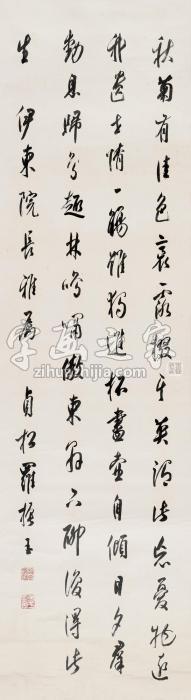 秋菊有佳色裛露掇其英汎此忘憂物遠
我遺世情一觴雖獨進杯盡壺自傾日夕羣
動息歸鳥趨林鳴嘯傲東軒下聊復得此
生 伊東院長雅屬 貞松羅振玉
字画之家
zihuazhijia.com